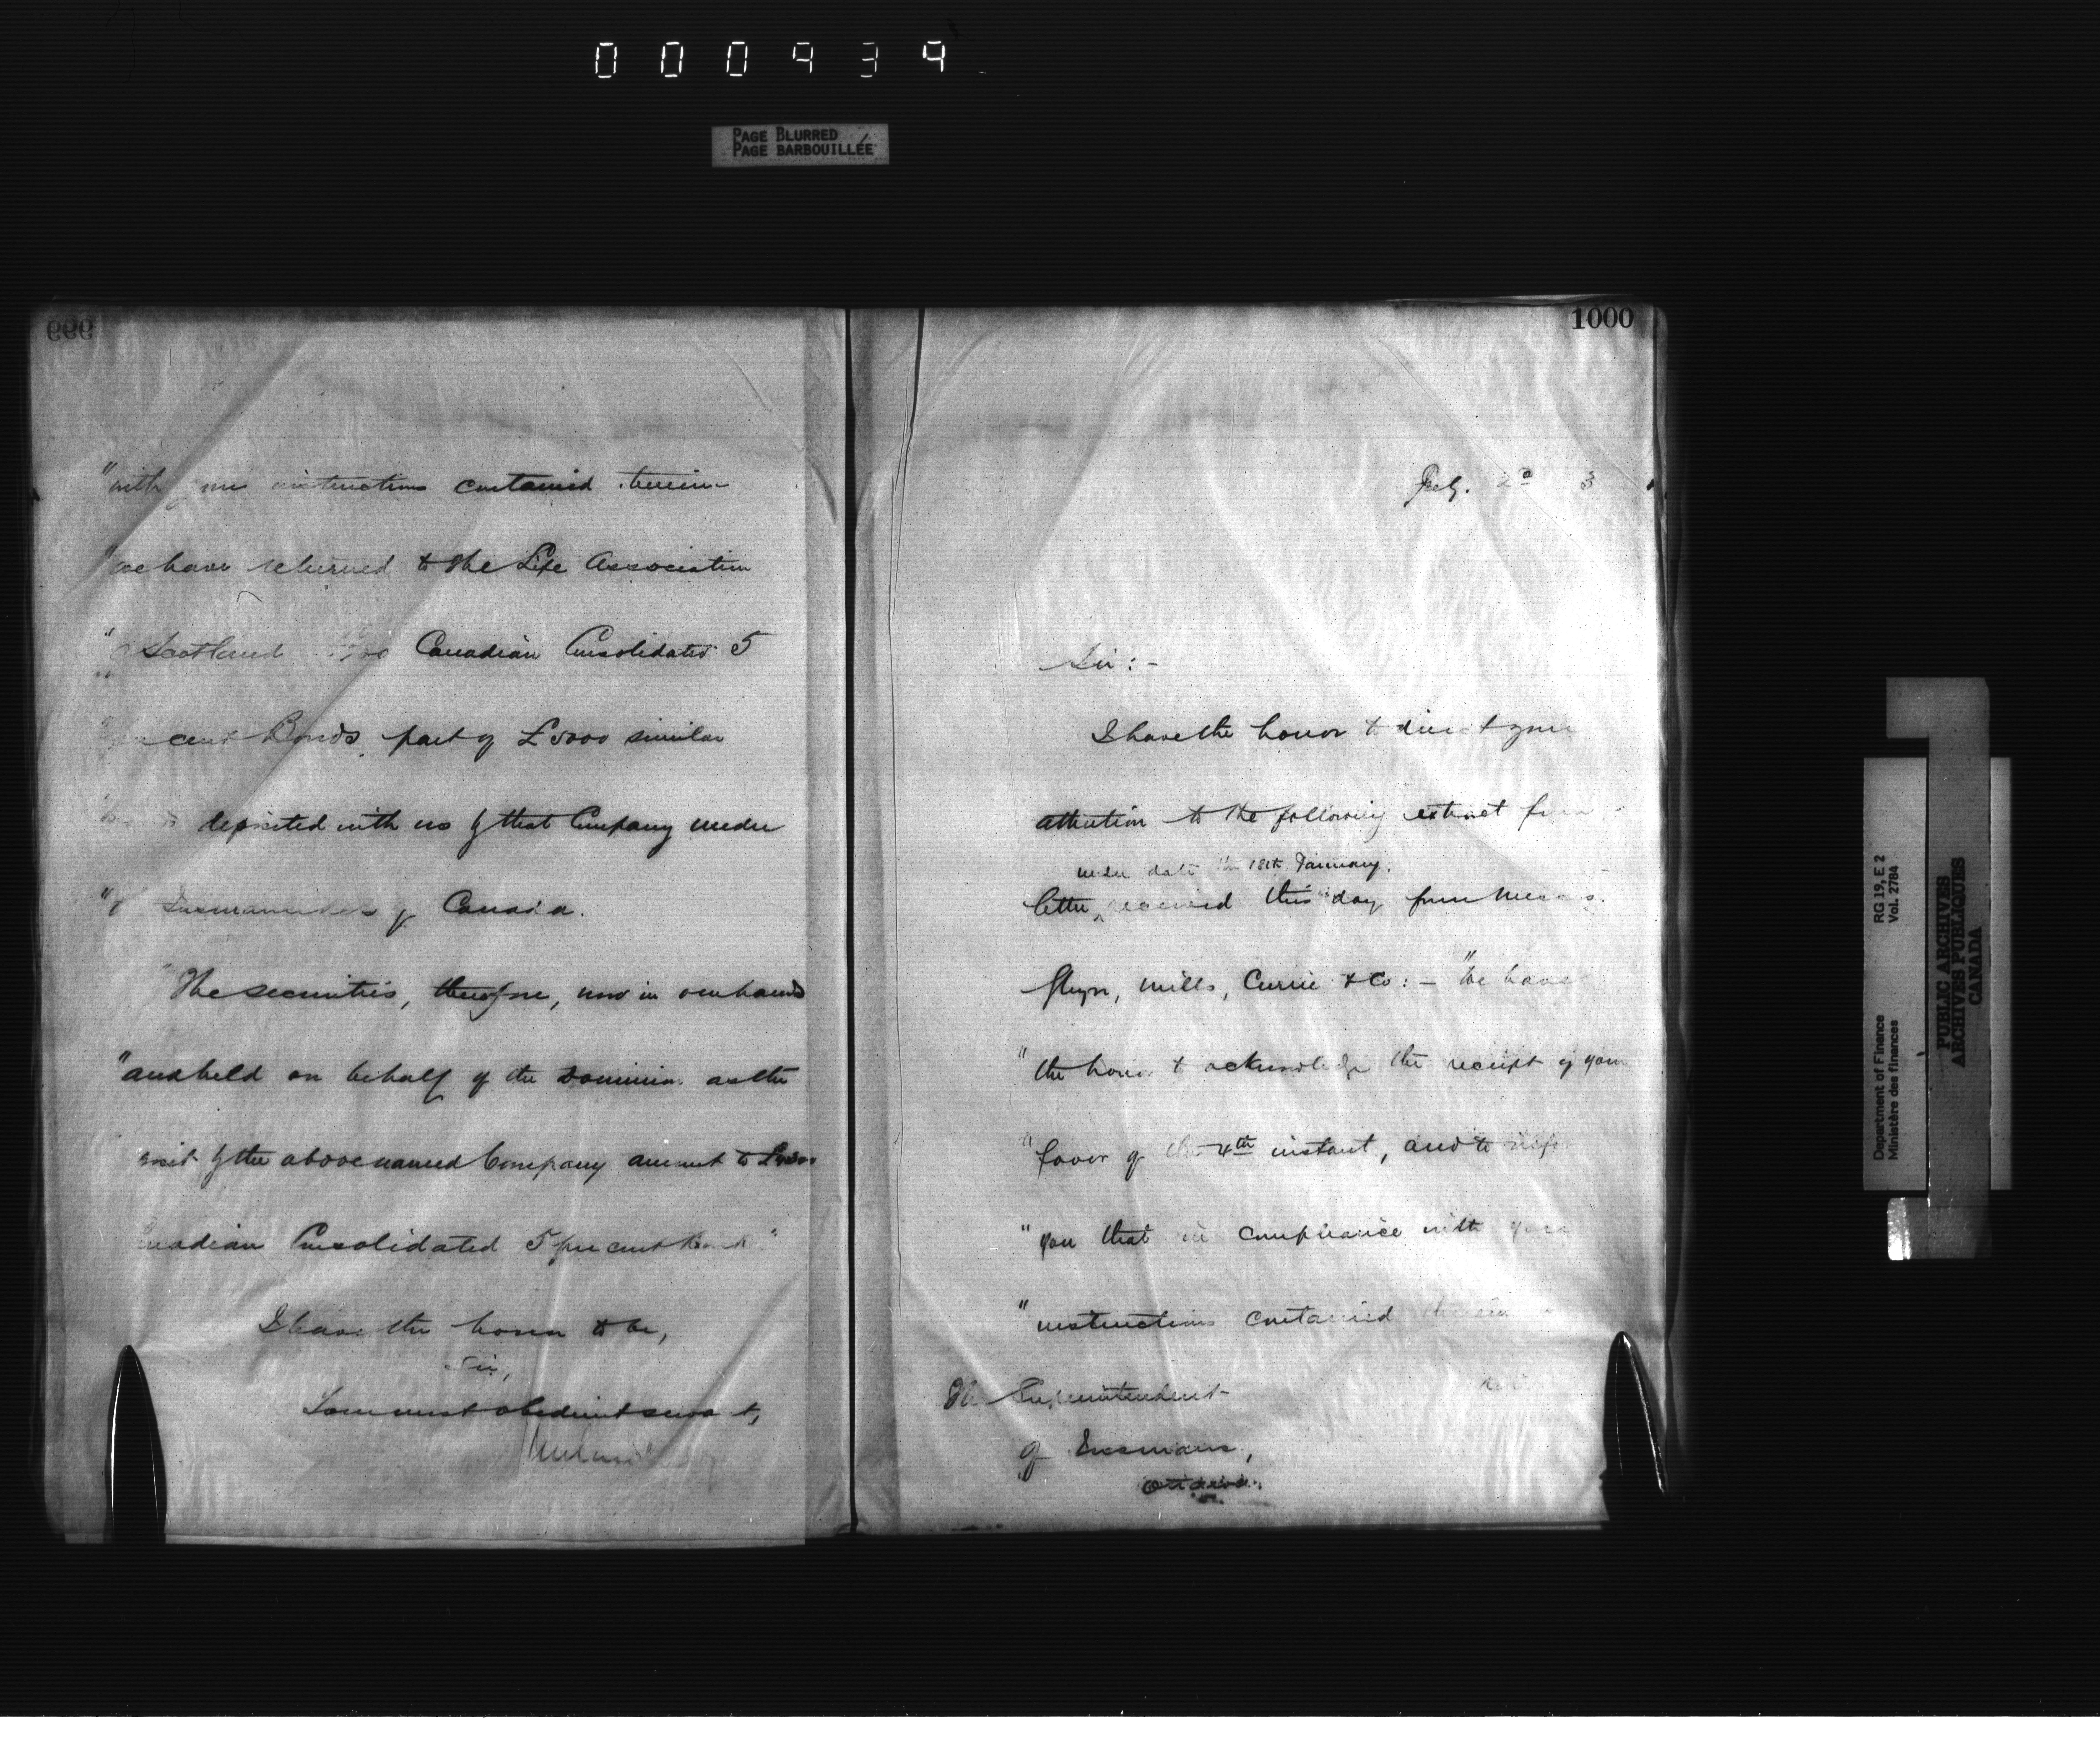 000934
PAGE BLURRED
PAGE BARBOUILLÉE
999
"with your instructions contained therein
"we have returned to the Life Association
" Scotland Canadian Consolidated 5
per cent Bonds part of £5000 similar
deposited with us by that Company under
" Insurance of Canada.
"The securities, therefore, now in our hands
"and held on behalf of the Dominion as the
by the above named Company amount to
Canadian Consolidated 5 per cent
I have the honor to be,
Sir,
Your most obedient servant,
1000
Feby. 2d 3
Sir:-
I have the honor to direct your
attention to the following extract from
under date the 18th January.
letter received this day from Messrs.
Glyn, Mills, Currie & Co:- "We have
"the honor to acknowledge the receipt of your
"favor of the 4th instant, and to
"you that in compliance with your
"instructions contained therein
The Superintendent
of Insurance,
Ottawa.
Department of Finance RG 19, E 2
Ministère des finances Vol. 2784
PUBLIC ARCHIVES
ARCHIVES PUBLIQUES
CANADA